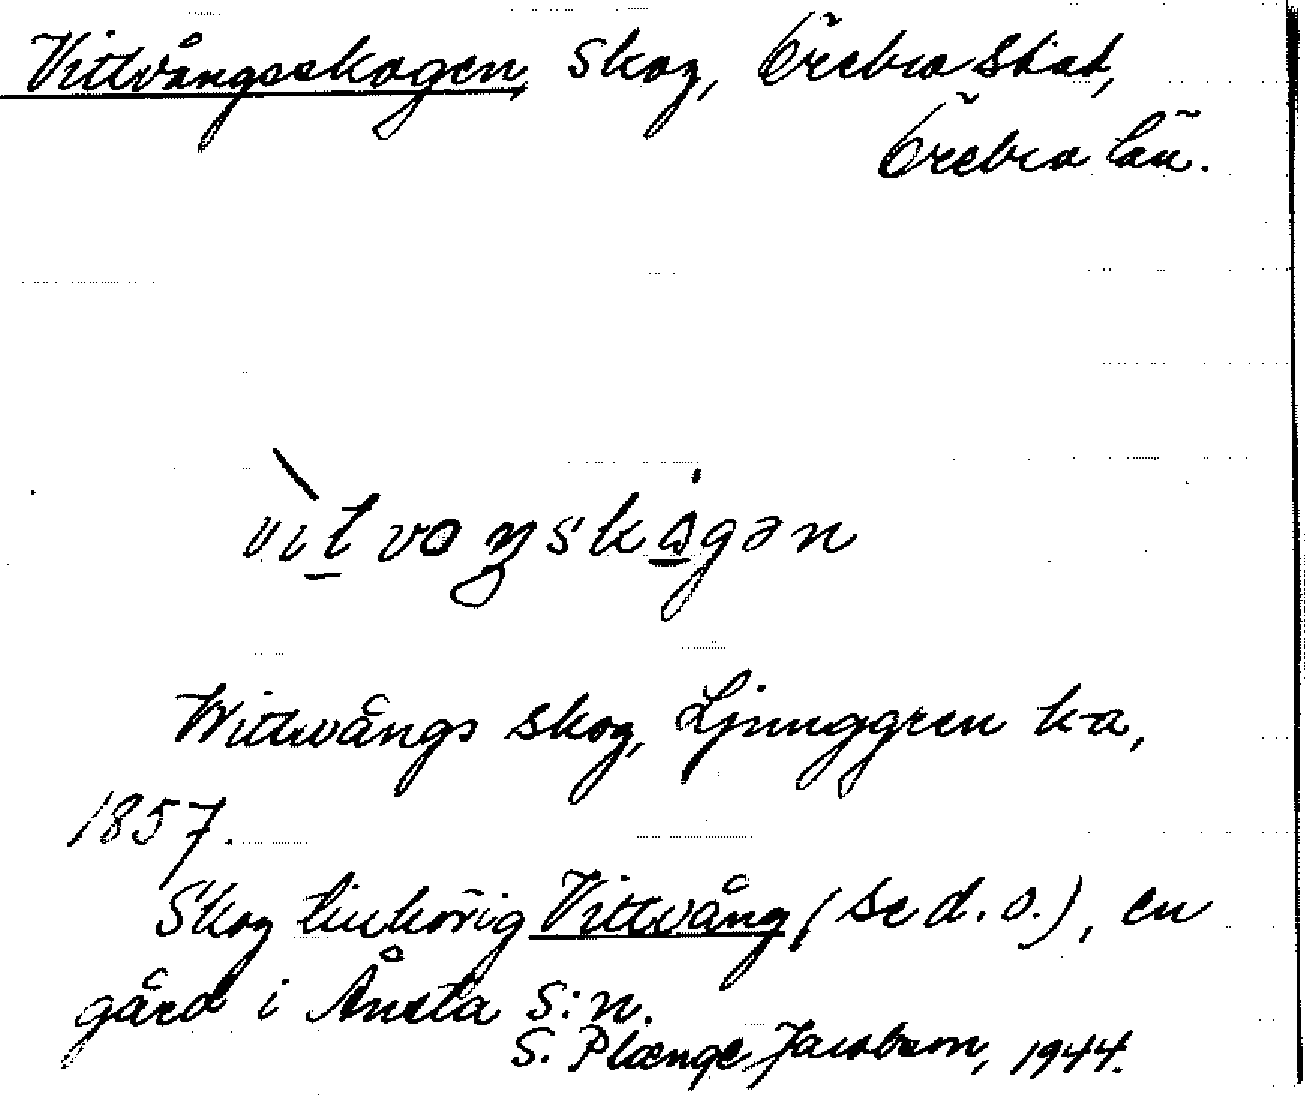 Vittvångsskogen, Skog, Örebro Stad,
Örebro län.
vìtvoŋskågən
Wittwångs skog, Ljunggren ka,
1857.
Skog tillhörig Vittvång (se d. o.), en
gård i Ånsta s:n.
S. Plænge Jacobson, 1944.